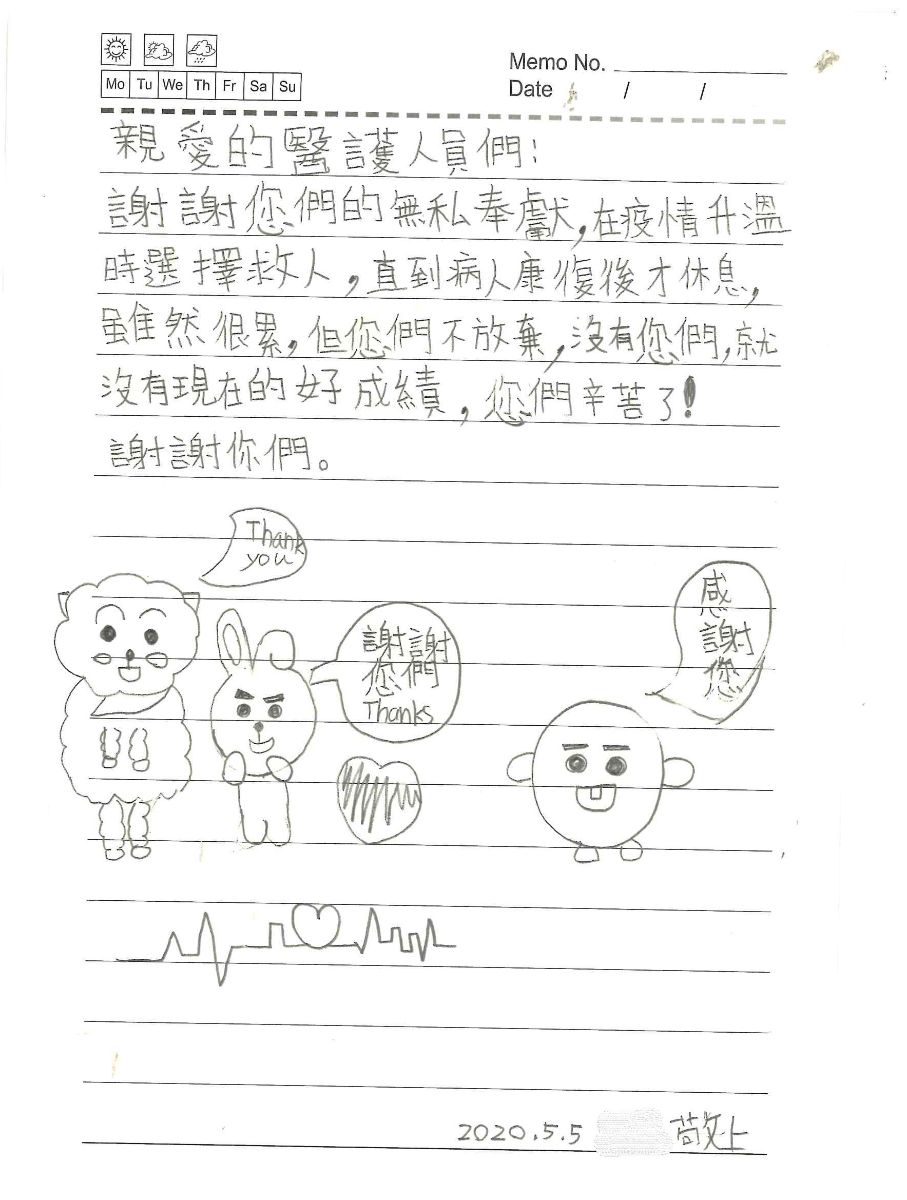 Memo No.
Mo Tu We Th Fr Sa Su
Date / /
親愛的醫護人員們:
謝謝您們的無私奉獻,在疫情升溫
時選擇救人,直到病人康復後才休息,
雖然很累,但您們不放棄,沒有您們,就
沒有現在的好成績,您們辛苦了!
謝謝你們。
Thank
you
謝謝
您們
Thanks
感
謝
您
2020.5.5 敬上